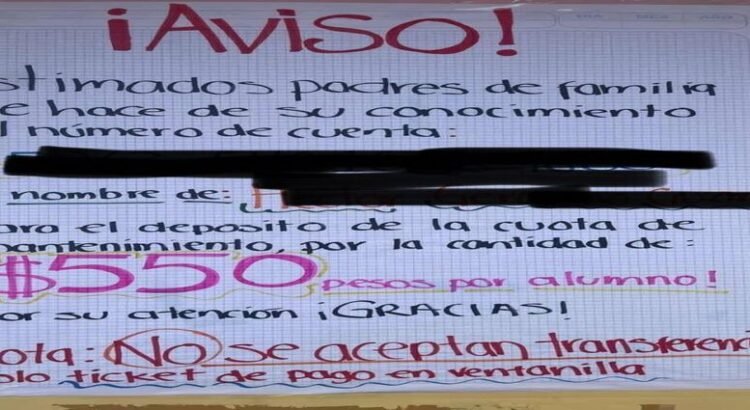 ¡AVISO!
stimados padres de familia
e hace de su conocimiento
l número de cuenta:
nombre de:
ara el deposito de la cuota de
mantenimiento, por la cantidad de:
$550 pesos por alumno!
or su atención ¡GRACIAS!
ota: NO se aceptan transferenc
olo ticket de pago en ventanilla